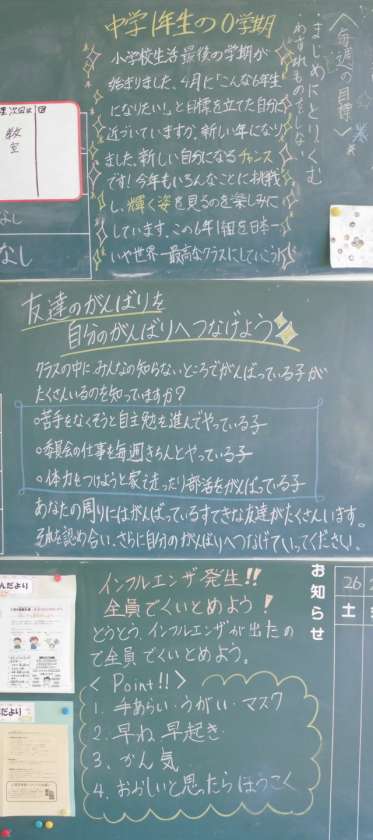 中学1年生の0学期
小学校生活最後の学期が
始まりました。4月に「こんな6年生
になりたい!」と目標を立てた自分に
近づいていますか。新しい年になり
ました。新しい自分になるチャンス
です!今年もいろんなことに挑戦
し、輝く姿を見るのを楽しみに
しています。この6年1組を日本一
いや世界一最高なクラスにしていこう!
〈毎週の目標〉
・まじめにとりくむ
・わすれものをしない
教室
なし
なし
友達のがんばりを
自分のがんばりへつなげよう
クラスの中にみんなの知らないところでがんばっている子が
たくさんいるのを知っていますか?
○苦手をなくそうと自主勉を進んでやっている子
○委員会の仕事を毎週きちんとやっている子
○体力をつけようと家で走ったり部活をがんばっている子
あなたの周りにはがんばっているすてきな友達がたくさんいます。
それを認め合い、さらに自分のがんばりへつなげていってください。
インフルエンザ発生!!
全員でくいとめよう!
とうとう、インフルエンザが出たの
で全員でくいとめよう。
<Point!!>
1. 手あらい・うがい・マスク
2. 早ね 早起き
3. かん気
4. おかしいと思ったらほうこく
お知らせ
26
土
んだより
だより